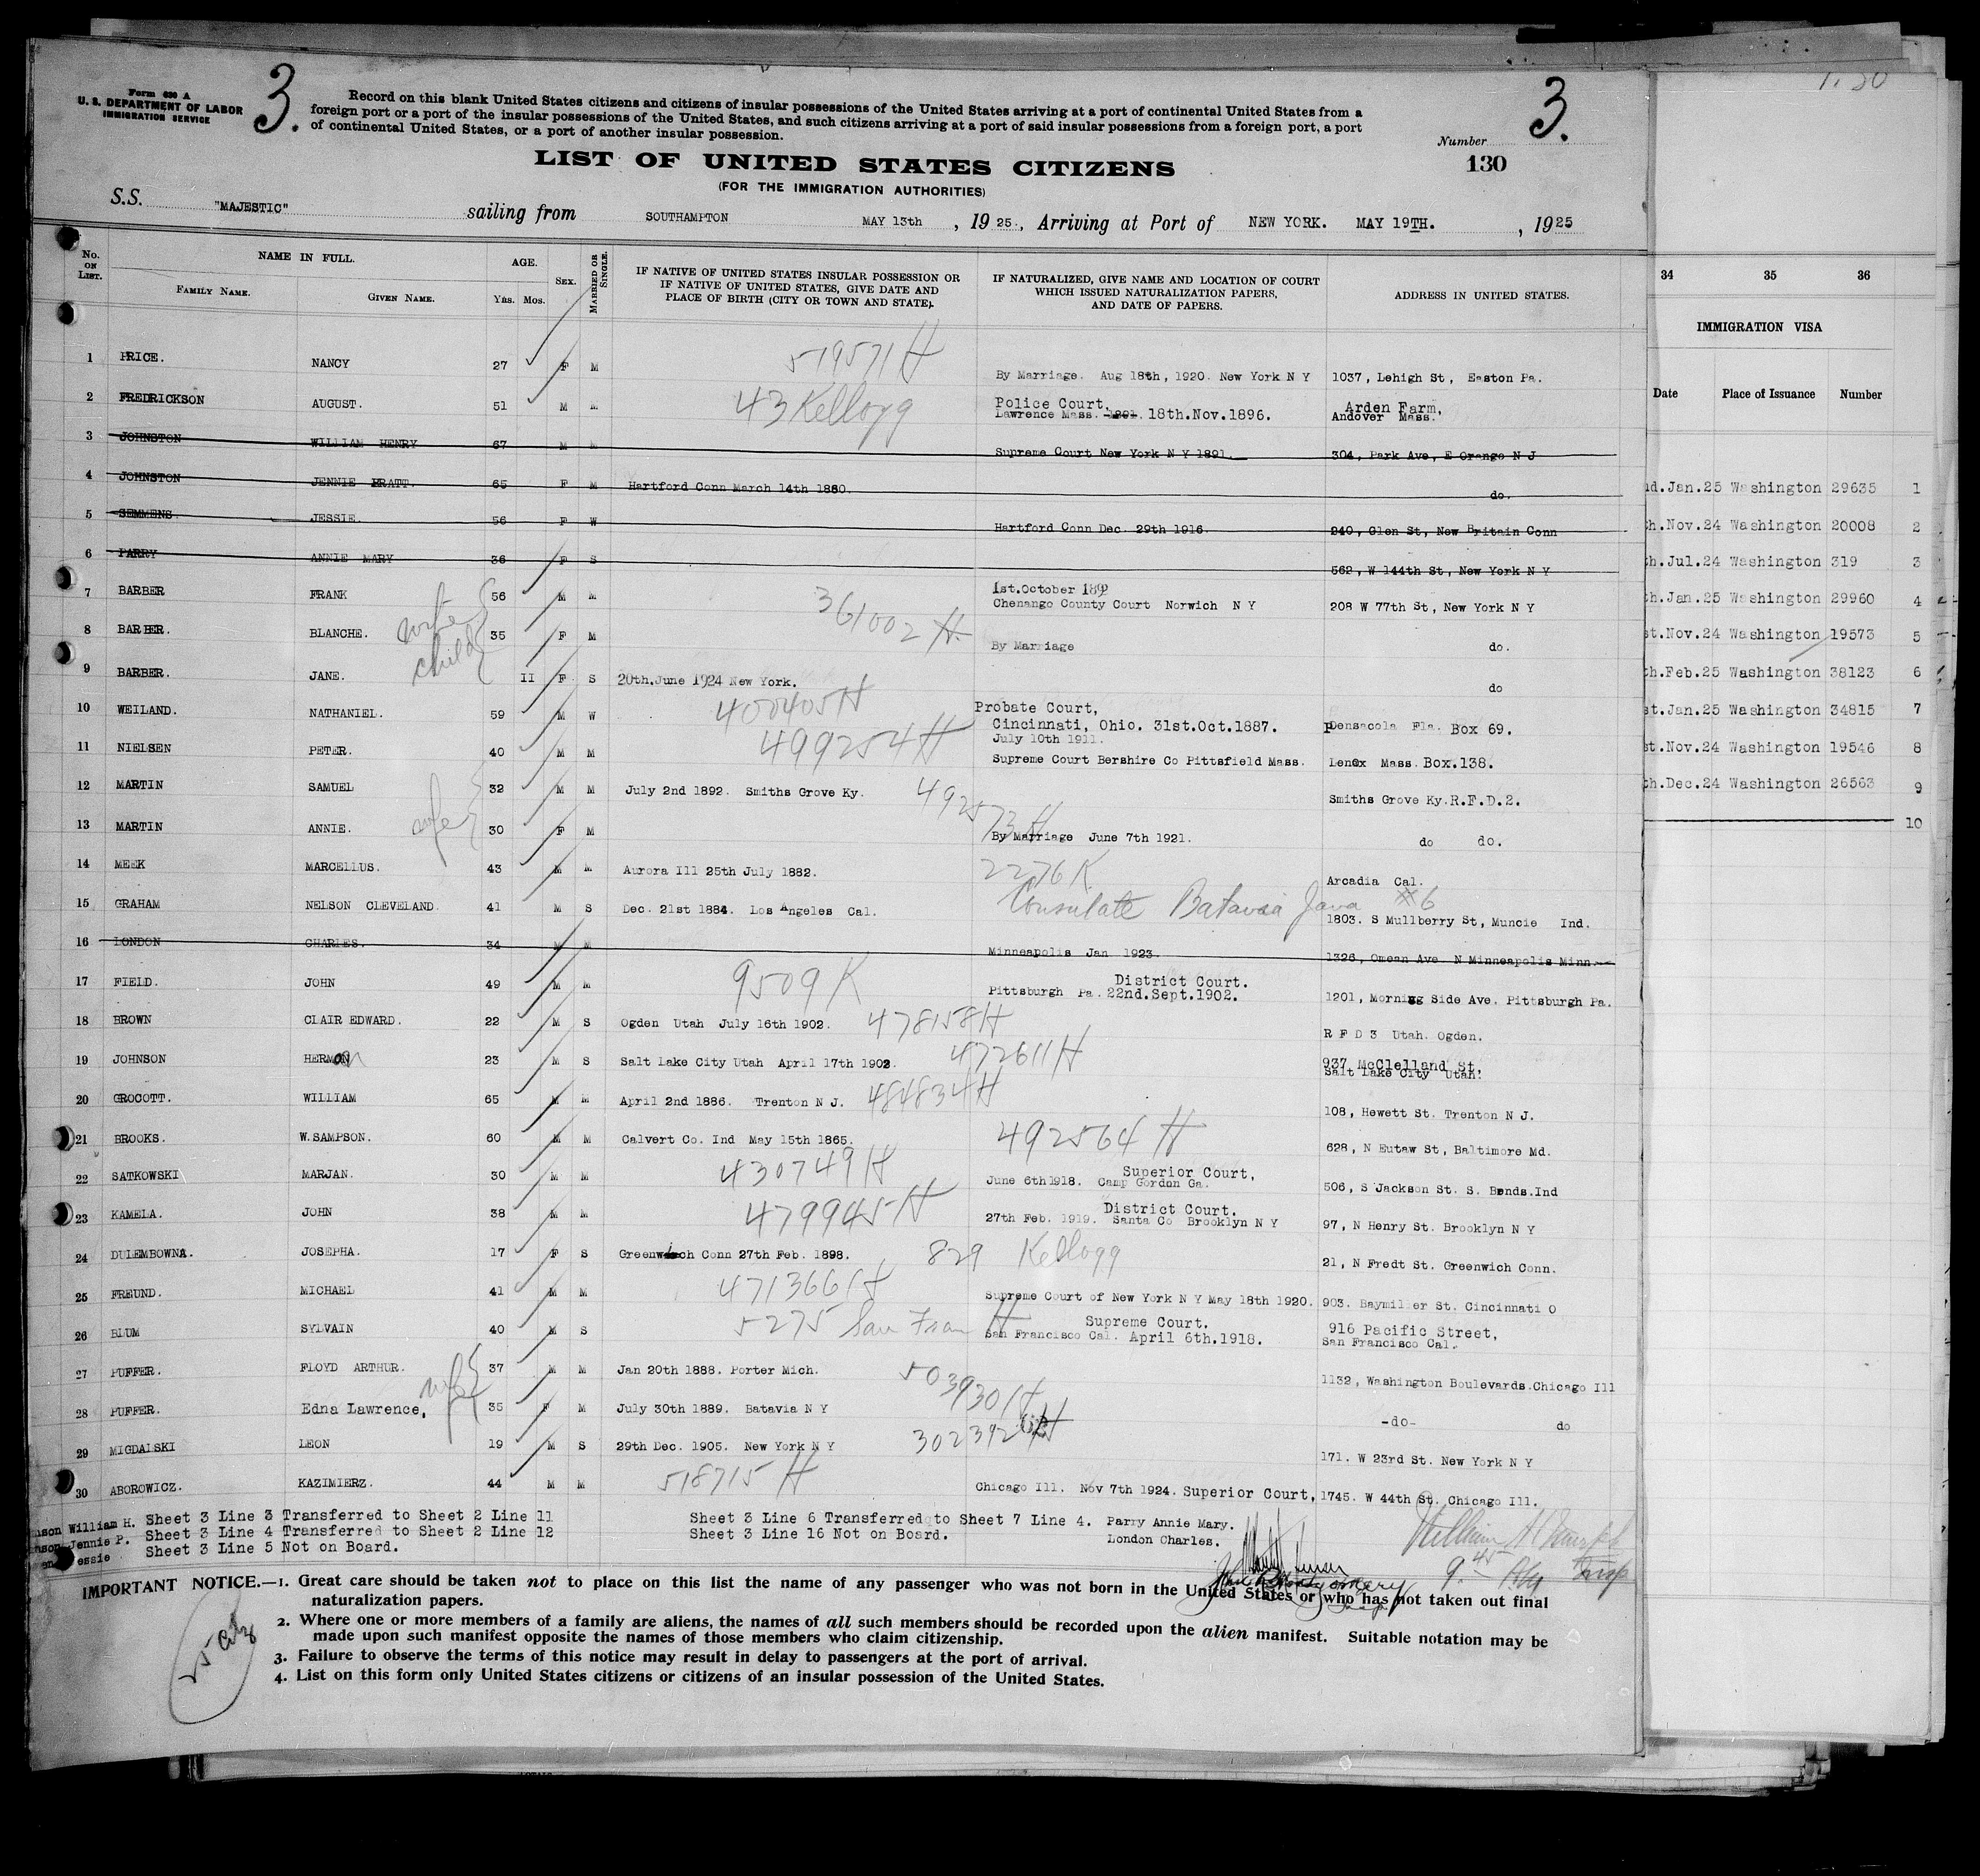 Form 630 A
U. S. DEPARTMENT OF LABOR
IMMIGRATION SERVICE
3.
Record on this blank United States citizens and citizens of insular possessions of the United States arriving at a port of continental United States from a
foreign port or a port of the insular possessions of the United States, and such citizens arriving at a port of said insular possessions from a foreign port, a port
of continental United States, or a port of another insular possession.
3.
Number
130
LIST OF UNITED STATES CITIZENS
(FOR THE IMMIGRATION AUTHORITIES)
S.S. "MAJESTIC" sailing from SOUTHAMPTON MAY 13th, 1925., Arriving at Port of NEW YORK. MAY 19TH., 1925
No. ON LIST. NAME IN FULL. FAMILY NAME. GIVEN NAME. AGE. Yrs. Mos. SEX. MARRIED OR SINGLE. IF NATIVE OF UNITED STATES INSULAR POSSESSION OR IF NATIVE OF UNITED STATES, GIVE DATE AND PLACE OF BIRTH (CITY OR TOWN AND STATE). IF NATURALIZED, GIVE NAME AND LOCATION OF COURT WHICH ISSUED NATURALIZATION PAPERS, AND DATE OF PAPERS. ADDRESS IN UNITED STATES.
1 PRICE. NANCY 27 F M 519571 H By Marriage. Aug 18th, 1920. New York N Y 1037, Lehigh St, Easton Pa.
2 FREDRICKSON AUGUST. 51 M M 43 Kellogg Police Court. Lawrence Mass. 1891. 18th.Nov.1896. Arden Farm, Andover Mass.
3 JOHNSTON WILLIAM HENRY 67 M M Supreme Court New York N Y 1891. 304, Park Ave, E Orange N J
4 JOHNSTON JENNIE PRATT. 65 F M Hartford Conn March 14th 1880. do.
5 SEMMENS. JESSIE. 56 F W Hartford Conn Dec. 29th 1916. 240, Glen St, New Britain Conn
6 PARRY ANNIE MARY 36 F S 562, W 144th St, New York N Y
7 BARBER FRANK 56 M M 361002 H 1st.October 1892 Chenango County Court Norwich N Y 208 W 77th St, New York N Y
8 BARBER. BLANCHE. wife 35 F M By Marriage do.
9 BARBER. JANE. child 11 F S 20th.June 1924 New York. do
10 WEILAND. NATHANIEL. 59 M W 400405 H Probate Court, Cincinnati, Ohio. 31st.Oct.1887. Pensacola Fla. Box 69.
11 NIELSEN PETER. 40 M M 499254 H July 10th 1911. Supreme Court Bershire Co Pittsfield Mass. Lenox Mass. Box.138.
12 MARTIN SAMUEL 32 M M July 2nd 1892. Smiths Grove Ky. 492573 H Smiths Grove Ky.R.F.D.2.
13 MARTIN ANNIE. wife 30 F M By Marriage June 7th 1921. do do.
14 MEEK MARCELLUS. 43 M M Aurora Ill 25th July 1882. 2276 K Arcadia Cal.
15 GRAHAM NELSON CLEVELAND. 41 M S Dec. 21st 1884. Los Angeles Cal. Consulate Batavia Java #6 1803. S Mullberry St, Muncie Ind.
16 LONDON CHARLES. 34 M M Minneapolis Jan 1923. 1326, Omean Ave. N Minneapolis Minn.
17 FIELD. JOHN 49 M M 9509 K District Court. Pittsburgh Pa. 22nd.Sept.1902. 1201, Morning Side Ave. Pittsburgh Pa.
18 BROWN CLAIR EDWARD. 22 M S Ogden Utah July 16th 1902. 478158 H R F D 3 Utah. Ogden.
19 JOHNSON HERMAN 23 M S Salt Lake City Utah April 17th 1902 472611 H 937 McClelland St, Salt Lake City Utah.
20 GROCOTT. WILLIAM 65 M M April 2nd 1886. Trenton N J. 484834 H 108, Hewett St. Trenton N J.
21 BROOKS. W.SAMPSON. 60 M M Calvert Co. Ind May 15th 1865. 492564 H 628, N Eutaw St, Baltimore Md.
22 SATKOWSKI MARJAN. 30 M M 430749 H Superior Court, June 6th1918. Camp Gordon Ga. 506, S Jackson St. S. Bends.Ind
23 KAMELA. JOHN 38 M M 479945 H District Court. 27th Feb. 1919. Santa Co Brooklyn N Y 97, N Henry St. Brooklyn N Y
24 DULEMBOWNA. JOSEPHA. 17 F S Greenwich Conn 27th Feb. 1898. 829 Kellogg 21, N Fredt St. Greenwich Conn.
25 FREUND. MICHAEL 41 M M 471366 H Supreme Court of New York N Y May 18th 1920. 903. Baymiller St. Cincinnati O
26 BLUM SYLVAIN 40 M S 5275 San Fran H Supreme Court. San Francisco Cal. April 6th.1918. 916 Pacific Street, San Francisco Cal.
27 PUFFER. FLOYD ARTHUR. 37 M M Jan 20th 1888. Porter Mich. 503930 H 1132, Washington Boulevards.Chicago Ill
28 PUFFER. Edna Lawrence, wife 35 F M July 30th 1889. Batavia N Y -do- do
29 MIGDALSKI LEON 19 M S 29th Dec. 1905. New York N Y 302392 H 171. W 23rd St. New York N Y
30 ABOROWICZ. KAZIMIERZ. 44 M M 518715 H Chicago Ill. Nov 7th 1924. Superior Court, 1745. W 44th St. Chicago Ill.
William H. Sheet 3 Line 3 Transferred to Sheet 2 Line 11 Sheet 3 Line 6 Transferred to Sheet 7 Line 4. Parry Annie Mary.
Jennie P. Sheet 3 Line 4 Transferred to Sheet 2 Line 12 Sheet 3 Line 16 Not on Board. London Charles.
essie Sheet 3 Line 5 Not on Board.
IMPORTANT NOTICE.—1. Great care should be taken not to place on this list the name of any passenger who was not born in the United States or who has not taken out final
naturalization papers.
2. Where one or more members of a family are aliens, the names of all such members should be recorded upon the alien manifest. Suitable notation may be
made upon such manifest opposite the names of those members who claim citizenship.
3. Failure to observe the terms of this notice may result in delay to passengers at the port of arrival.
4. List on this form only United States citizens or citizens of an insular possession of the United States.
34 35 36
IMMIGRATION VISA
Date Place of Issuance Number
d.Jan.25 Washington 29635 1
h.Nov.24 Washington 20008 2
h.Jul.24 Washington 319 3
h.Jan.25 Washington 29960 4
t.Nov.24 Washington 19573 5
h.Feb.25 Washington 38123 6
t.Jan.25 Washington 34815 7
t.Nov.24 Washington 19546 8
h.Dec.24 Washington 26563 9
10